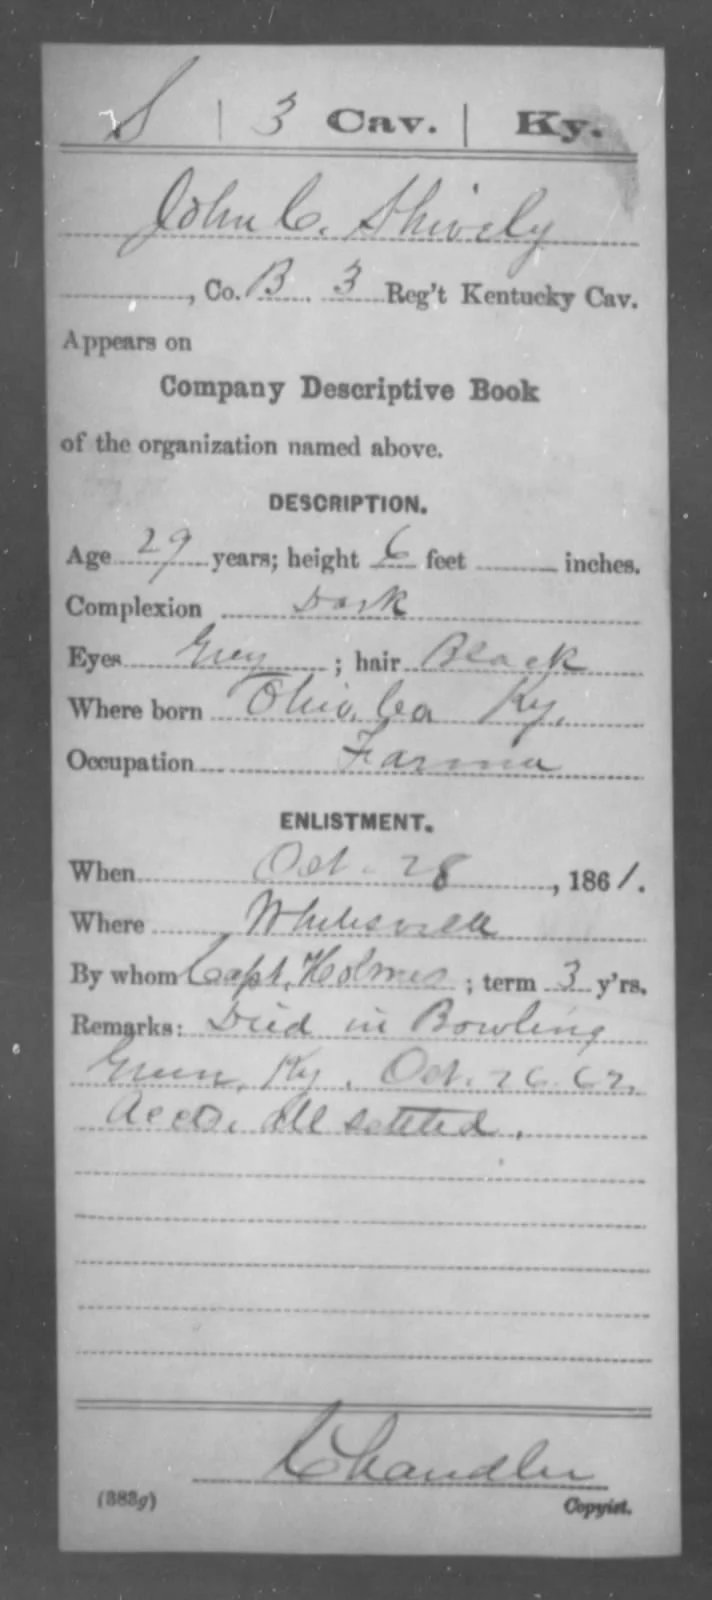 S | 3 Cav. | Ky.
John C. Shively
, Co. B. 3 Reg't Kentucky Cav.
Appears on
Company Descriptive Book
of the organization named above.
DESCRIPTION.
Age 29 years; height 6 feet inches.
Complexion Dark
Eyes Grey ; hair Black
Where born Ohio Co Ky.
Occupation Farmer
ENLISTMENT.
When Oct. 28, 1861.
Where Whitesville
By whom Capt. Holmes ; term 3 y'rs.
Remarks: Died in Bowling
Green, Ky. Oct. 26. 62.
Acco. All settled.
Chandler
(383g) Copyist.